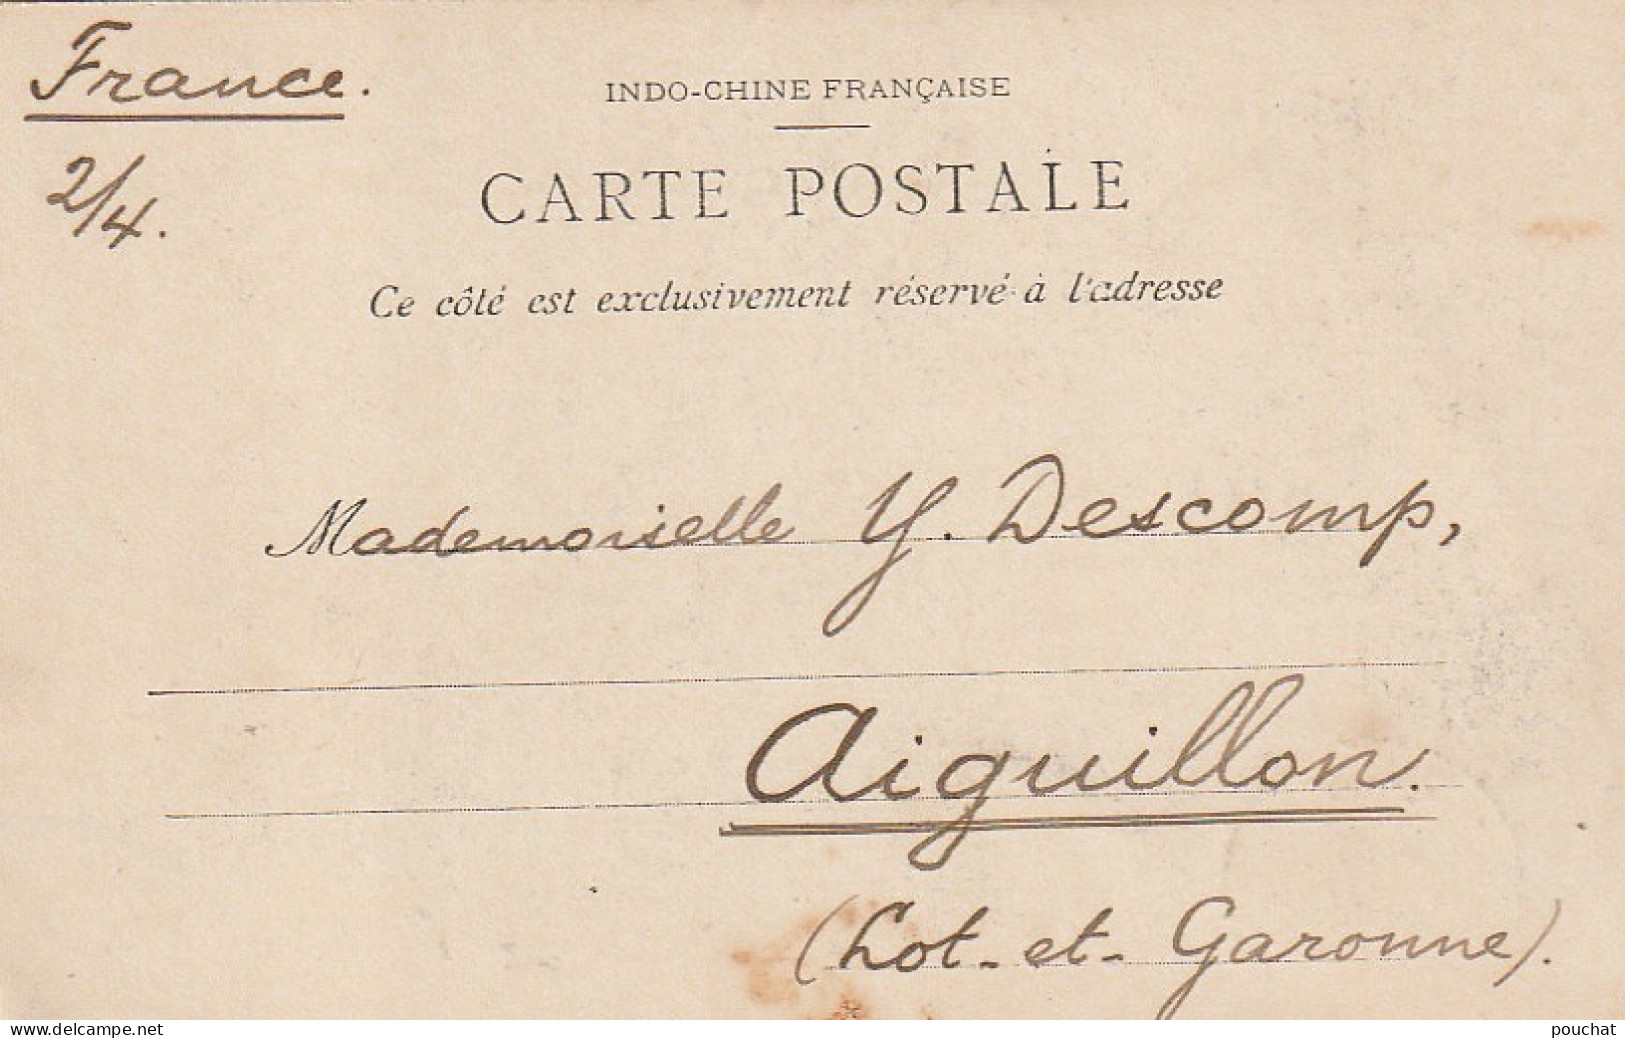 France.
2/4.
INDO-CHINE FRANÇAISE
CARTE POSTALE
Ce côté est exclusivement réservé à l'adresse
Mademoiselle Y. Descomp,
Aiguillon.
(Lot-et-Garonne).
www.delcampe.net
pouchat